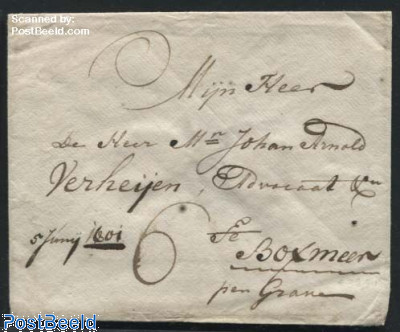 Scanned by:
PostBeeld.com
Mijn Heer
De Heer Mr Johan Arnold
Verheijen, Advocaat &cn
5 Junij 1801
6
Te
Boxmeer
per Grave
PostBeeld.com